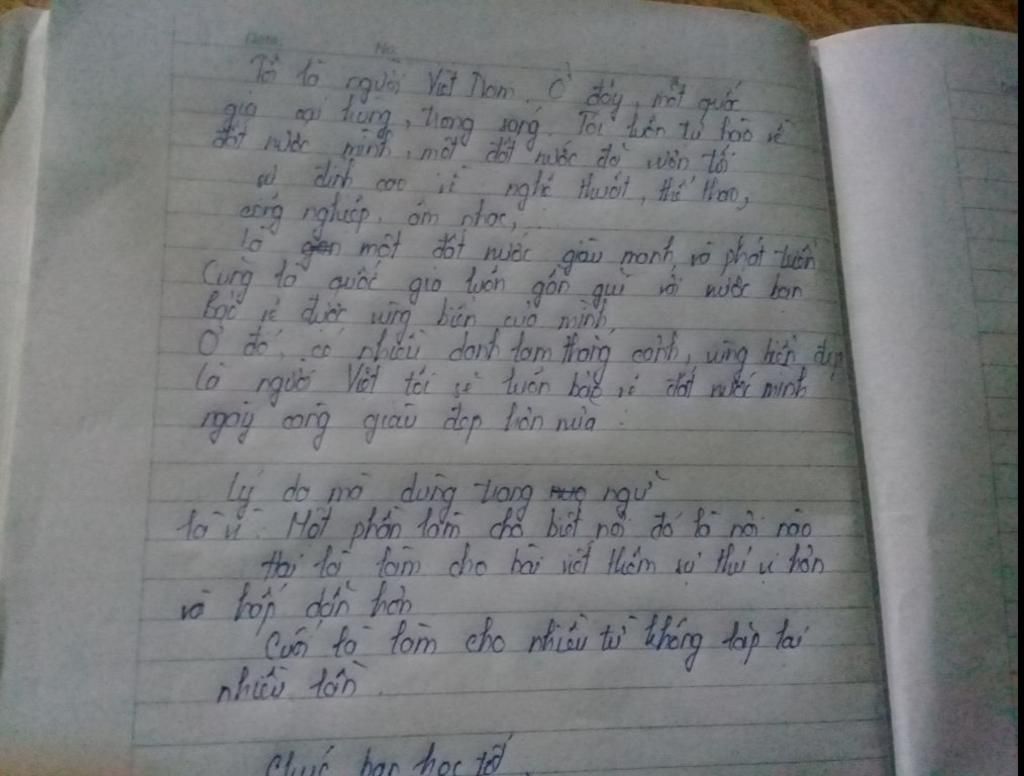 Date. No.
Tổ là người Việt Nam. Ở đây, một quốc
gia oai hùng, trong sáng. Tôi luôn tự hào về
đất nước mình, một đất nước đã vươn tới
sự đỉnh cao về nghệ thuật, thể thao,
công nghiệp, âm nhạc,...
là một đất nước giàu mạnh và phát triển
Cũng là quốc gia luôn gần gũi với nước bạn
Bảo vệ được vùng biển của mình,
Ở đó, có nhiều danh lam thắng cảnh, vùng biển đẹp
là người Việt tôi sẽ luôn bảo vệ đất nước mình
ngày càng giàu đẹp hơn nữa.
Lý do mà dùng trạng ngữ
là vì: Một phần làm cho biết nơi đó là nơi nào
Hai là làm cho bài viết thêm sự thú vị hơn
và hấp dẫn hơn
Cuối là làm cho nhiều từ không lặp lại
nhiều lần.
Chúc bạn học tốt